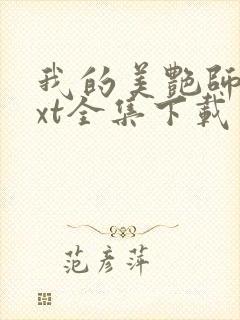 我的美艷師
xt全集下載
范彥萍